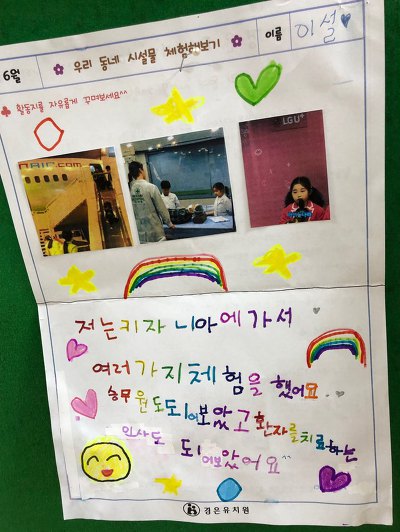 6월
우리 동네 시설물 체험해보기
이름
이설
활동지를 자유롭게 꾸며보세요^^
AIR.com
LG U+
저는 키자니아에 가서
여러가지 체험을 했어요
승무원도 되어보았고 환자를 치료하는
의사도 되어보았어요^^
경은유치원